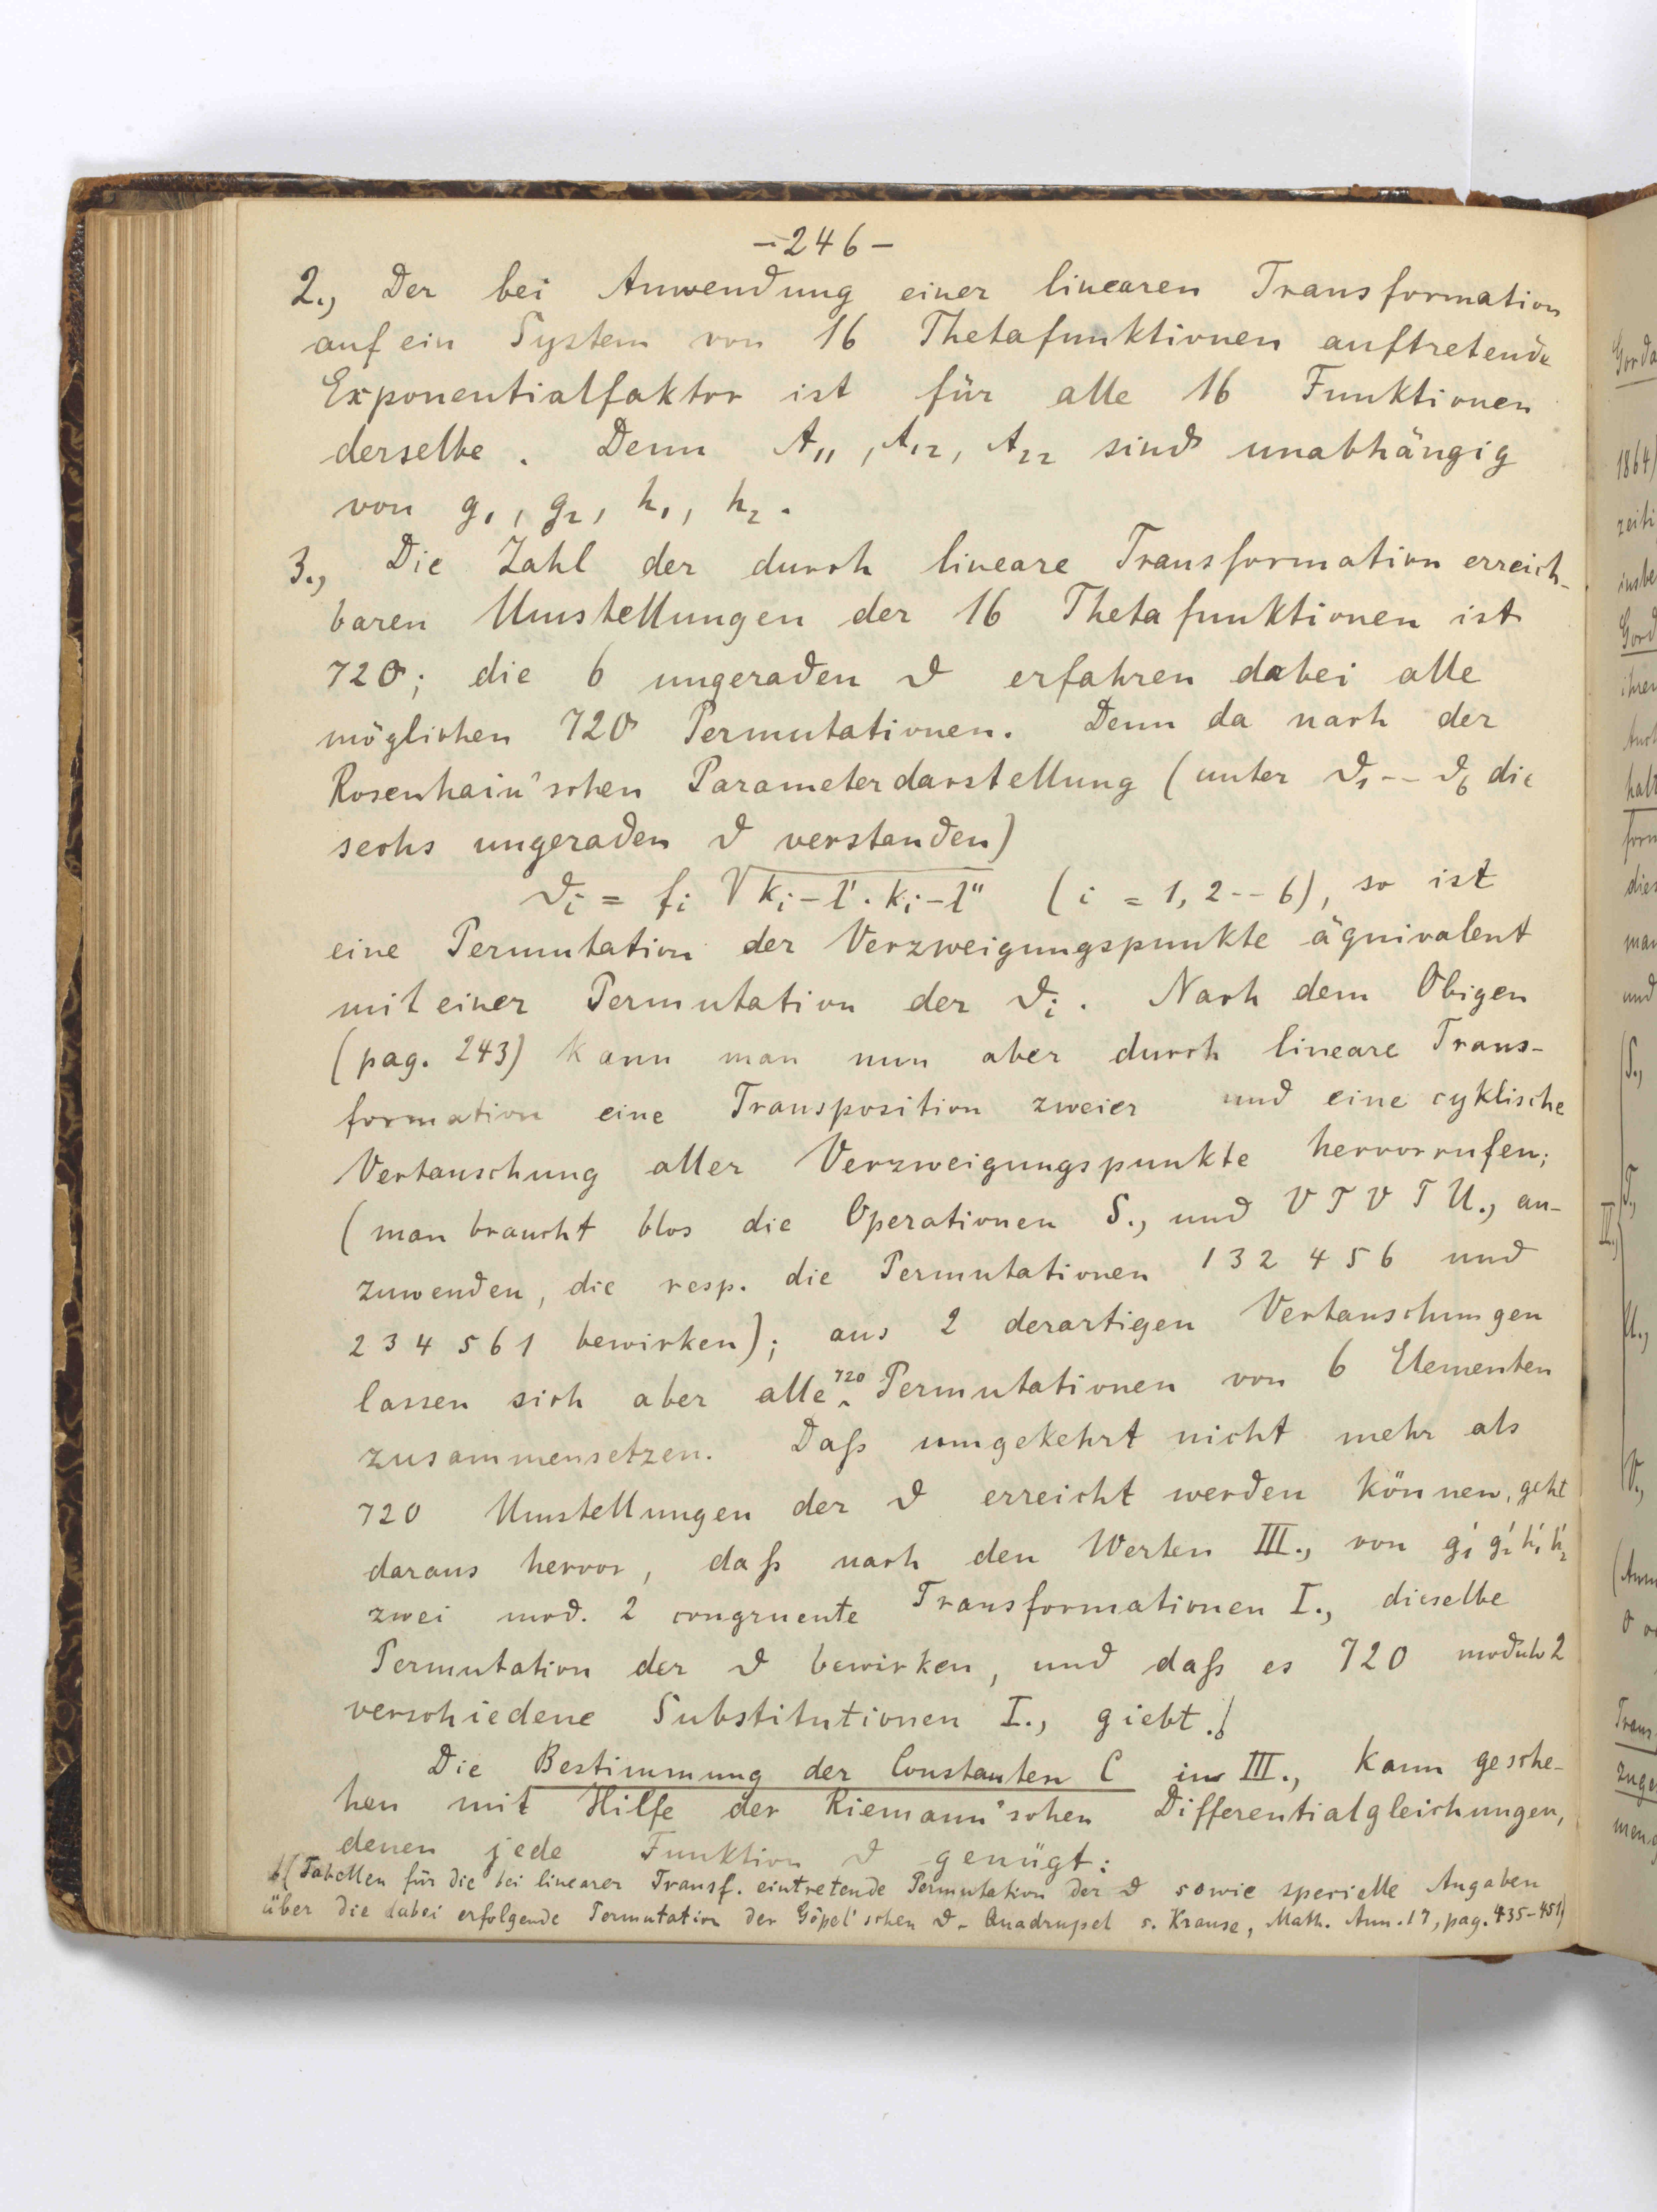 -246-
2., Der bei Anwendung einer linearen Transformation
auf ein System von 16 Thetafunktionen auftretende
Exponentialfaktor ist für alle 16 Funktionen
derselbe. Denn A₁₁, A₁₂, A₂₂ sind unabhängig
von g₁, g₂, h₁, h₂.
3., Die Zahl der durch lineare Transformation erreich-
baren Umstellungen der 16 Thetafunktionen ist
720; die 6 ungeraden ϑ erfahren dabei alle
möglichen 720 Permutationen. Denn da nach der
Rosenhain'schen Parameterdarstellung (unter ϑ₁--ϑ₆ die
sechs ungeraden ϑ verstanden)
ϑᵢ = fᵢ √kᵢ-l'.kᵢ-l" (i = 1, 2--6), so ist
eine Permutation der Verzweigungspunkte äquivalent
mit einer Permutation der ϑᵢ. Nach dem Obigen
(pag. 243) kann man nun aber durch lineare Trans-
formation eine Transposition zweier und eine cyklische
Vertauschung aller Verzweigungspunkte hervorrufen;
(man braucht blos die Operationen S., und V T V T U., an-
zuwenden, die resp. die Permutationen 1 3 2 4 5 6 und
2 3 4 5 6 1 bewirken); aus 2 derartigen Vertauschungen
lassen sich aber alle 720 Permutationen von 6 Elementen
zusammensetzen. Daß umgekehrt nicht mehr als
720 Umstellungen der ϑ erreicht werden können, geht
daraus hervor, daß nach den Werten III., von g₁' g₂' h₁' h₂'
zwei mod. 2 congruente Transformationen I., dieselbe
Permutation der ϑ bewirken, und daß es 720 modulo 2
verschiedene Substitutionen I., giebt.
Die Bestimmung der Constanten C in III., kann gesche-
hen mit Hilfe der Riemann'schen Differentialgleichungen,
denen jede Funktion ϑ genügt:
(Tabellen für die bei linearer Transf. eintretende Permutation der ϑ sowie specielle Angaben
über die dabei erfolgende Permutation der Göpel'schen ϑ-Quadrupel s. Krause, Math. Ann. 17, pag. 435-451)
1864)
II.,
S.,
T.,
U.,
V.,